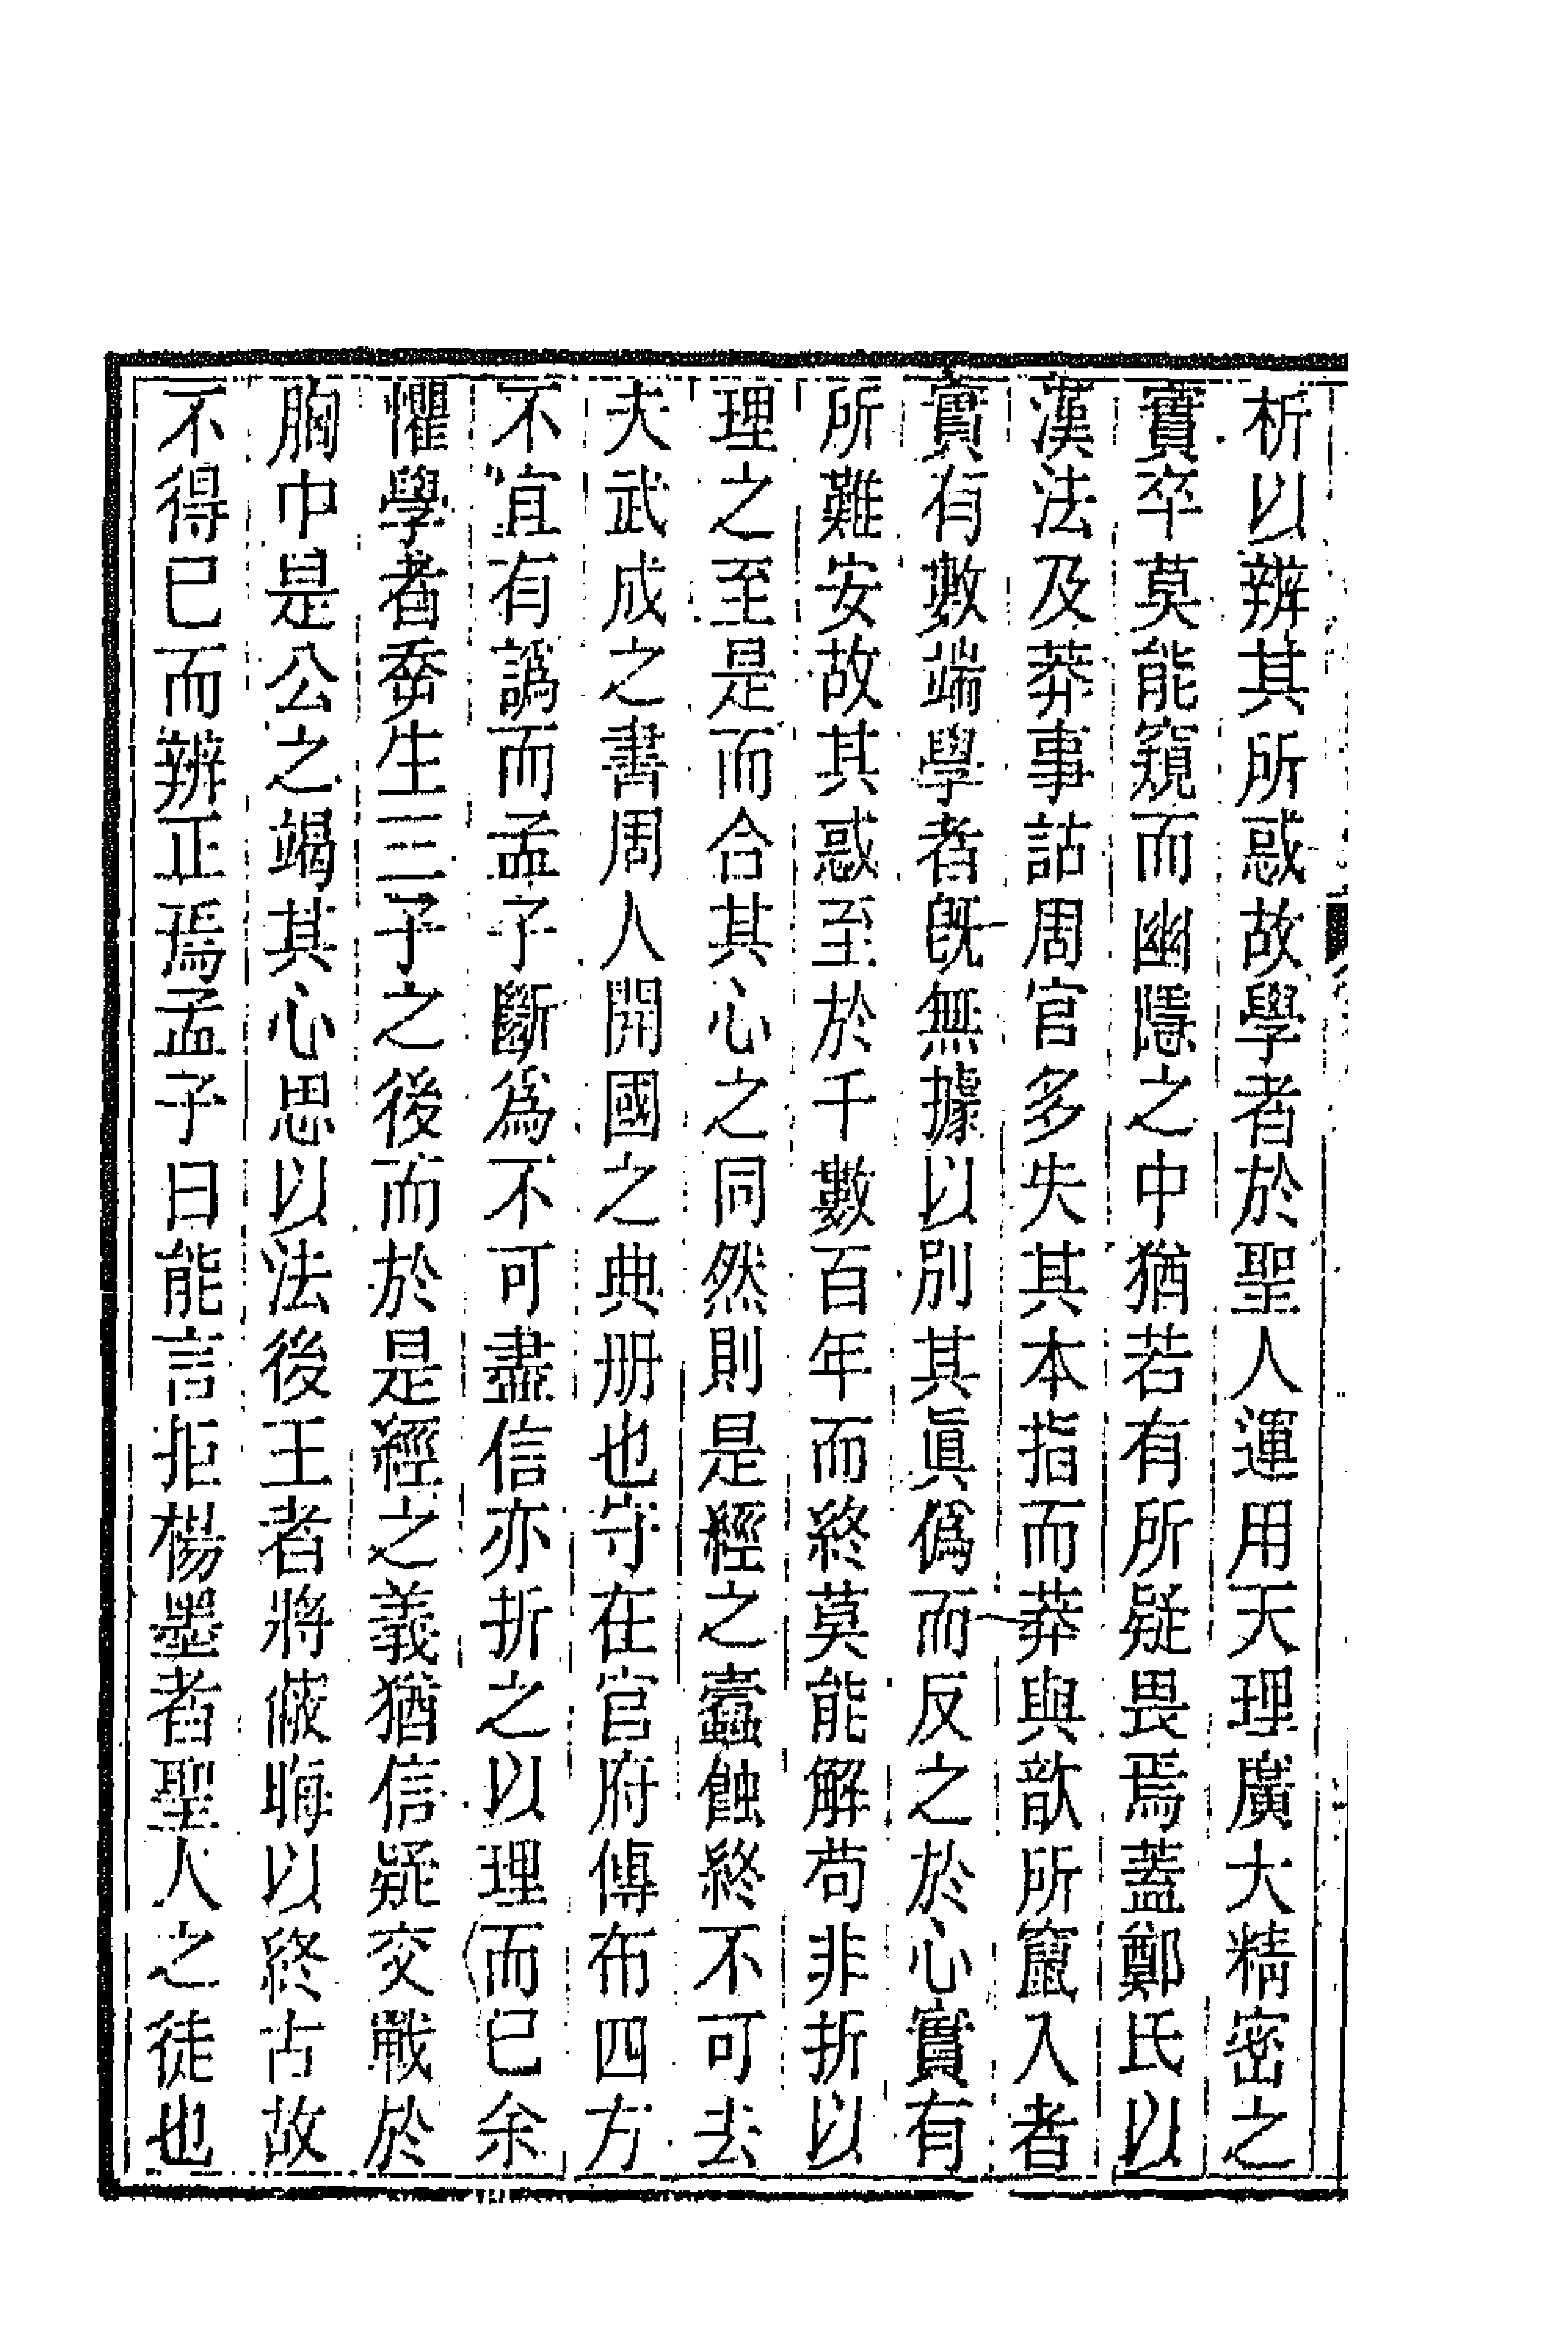 析以辨其所惑故學者於聖人運用天理廣大精密之
實卒莫能窺而幽隱之中猶若有所疑畏焉蓋鄭氏以
漢法及莽事詁周官多失其本指而莽與歆所竄入者
實有數端學者旣無據以別其眞僞而反之於心實有
所難安故其惑至於千數百年而終莫能解苟非折以
理之至是而合其心之同然則是經之蠹蝕終不可去
夫武成之書周人開國之典册也守在官府傳布四方
不宜有譌而孟子斷爲不可盡信亦折之以理而已余
懼學者乘生三子之後而於是經之義猶信疑交戰於
胸中是公之竭其心思以法後王者將蔽晦以終古故
不得已而辨正焉孟子曰能言拒楊墨者聖人之徒也